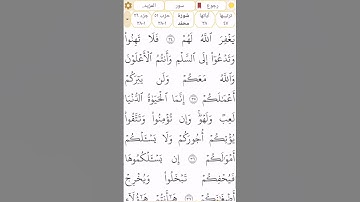 رجوع سور المزيد...
ترتيبها آياتها سورة حزب ٥١ جزء ٢٦
٤٧ ٣٨ محمد ١-٣٨ ١-٣٨
يَغْفِرَ ٱللَّهُ لَهُمْ ٣٤ فَلَا تَهِنُوا۟
وَتَدْعُوٓا۟ إِلَى ٱلسَّلْمِ وَأَنتُمُ ٱلْأَعْلَوْنَ
وَٱللَّهُ مَعَكُمْ وَلَن يَتِرَكُمْ
أَعْمَـٰلَكُمْ ٣٥ إِنَّمَا ٱلْحَيَوٰةُ ٱلدُّنْيَا
لَعِبٌ وَلَهْوٌ وَإِن تُؤْمِنُوا۟ وَتَتَّقُوا۟
يُؤْتِكُمْ أُجُورَكُمْ وَلَا يَسْـَٔلْكُمْ
أَمْوَٰلَكُمْ ٣٦ إِن يَسْـَٔلْكُمُوهَا
فَيُحْفِكُمْ تَبْخَلُوا۟ وَيُخْرِجْ
أَضْغَـٰنَكُمْ ٣٧ هَـٰٓأَنتُمْ هَـٰٓؤُلَآءِ